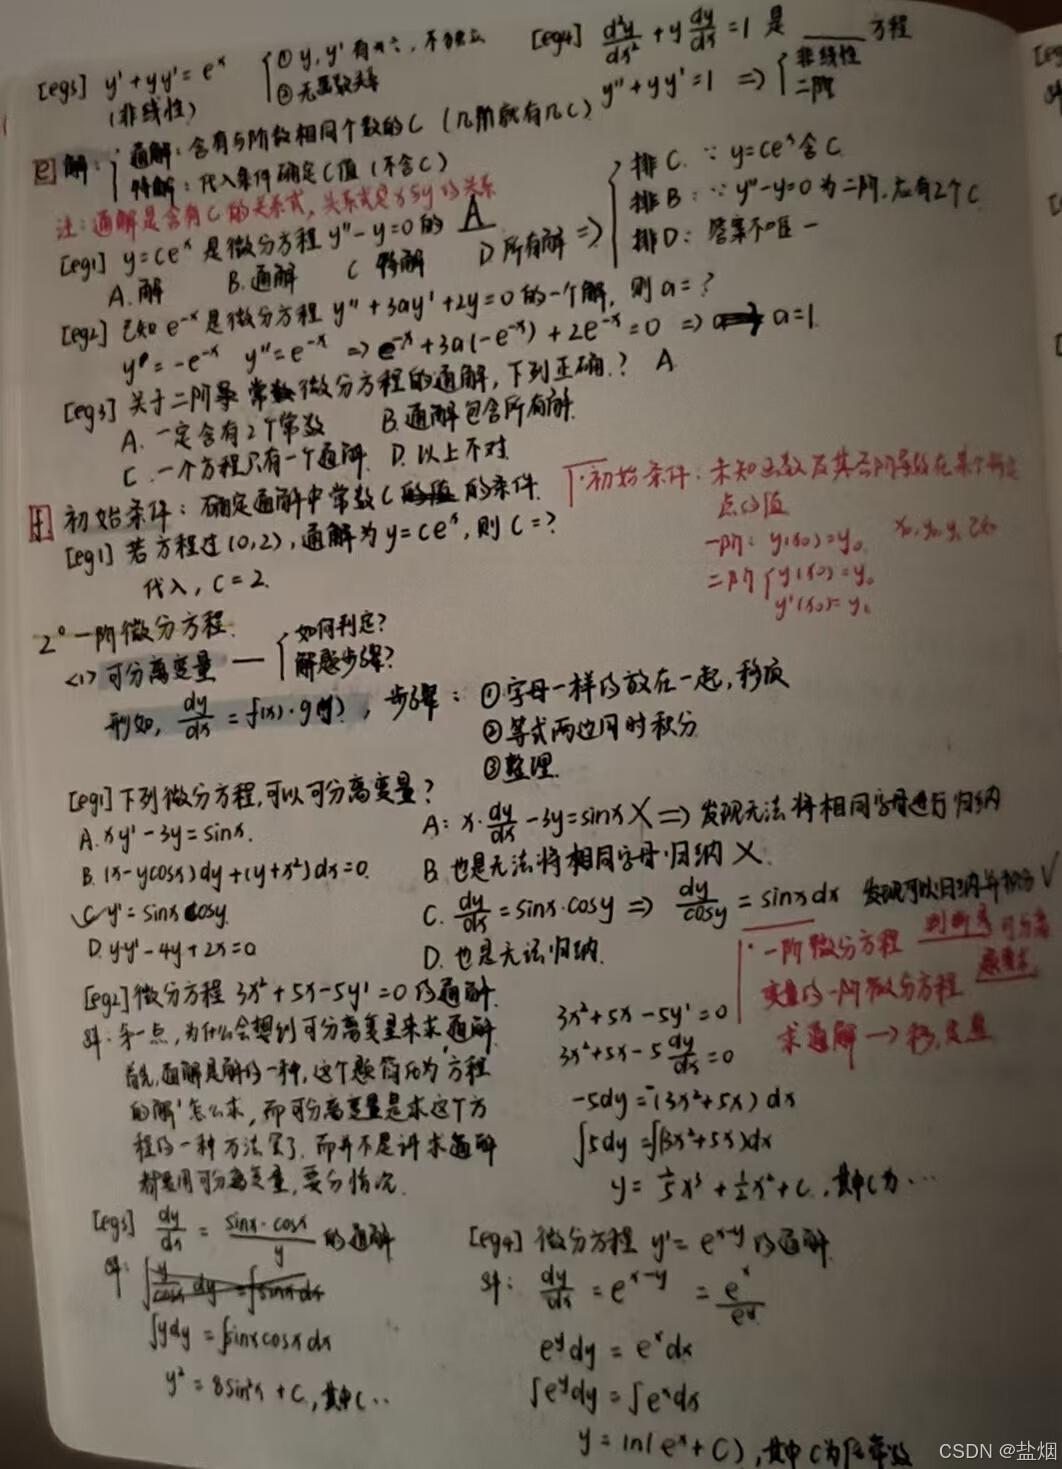 [eg3] y' + yy' = eˣ { ① y, y' 有
(非线性) ② 无函数关系
[eg4] d²y/dx² + y dy/dx = 1 是 ____ 方程
y'' + yy' = 1 => { 非线性 二阶
解: { 通解: 含有与阶数相同个数的C (几阶就有几C)
特解: 代入条件确定C值 (不含C)
注: 通解是含有C的关系式, 关系式是x与y的关系
[eg1] y=ceˣ 是微分方程 y''-y=0 的 A
A. 解 B. 通解 C 特解 D 所有解 =>
排C. ∵ y=ceˣ含C
排B: ∵ y''-y=0 为二阶. 应有2个C
排D: 答案不唯一
[eg2] 已知 e⁻ˣ 是微分方程 y'' + 3ay' + 2y = 0 的一个解, 则 a = ?
y' = -e⁻ˣ y'' = e⁻ˣ => e⁻ˣ + 3a(-e⁻ˣ) + 2e⁻ˣ = 0 => a=1.
[eg3] 关于二阶 常微分方程的通解, 下列正确.? A
A. 一定含有2个常数 B. 通解包含所有解.
C. 一个方程只有一个通解. D. 以上不对.
初始条件: 确定通解中常数C 的条件.
初始条件: 未知函数及其各阶导数在某个特定
点的值
一阶: y(x₀)=y₀ x₀, y₀, y₁ 已知
二阶 { y(x₀)=y₀
y'(x₀)=y₁
[eg1] 若方程过(0,2), 通解为 y=ceˣ, 则 C=?
代入, C=2.
2° 一阶微分方程.
<1> 可分离变量 — { 如何判定?
解题步骤?
形如, dy/dx = f(x)·g(y), 步骤: ①字母一样的放在一起, 移项
②等式两边同时积分
③整理.
[eg1] 下列微分方程, 可以可分离变量?
A. xy' - 3y = sinx.
B. (x-ycosx)dy + (y+x²)dx = 0.
C. y' = sinx cosy.
D. yy' - 4y + 2x = 0
A: x·dy/dx - 3y = sinx X => 发现无法将相同字母进行归纳
B. 也是无法将相同字母归纳 X.
C. dy/dx = sinx·cosy => dy/cosy = sinx dx 发现可以归纳并积分 √
D. 也是无法归纳.
· 一阶微分方程 判断是可分离
变量的一阶微分方程
求通解 → 移, 变量
[eg2] 微分方程 3x² + 5x - 5y' = 0 的通解.
解: 第一点, 为什么会想到可分离变量来求通解.
首先, 通解是解的一种, 这个题简化为'方程
的解'怎么求, 而可分离变量是求这个方
程的一种方法罢了. 而并不是讲求通解
都要用可分离变量, 要分情况.
3x² + 5x - 5y' = 0
3x² + 5x - 5 dy/dx = 0
-5dy = -(3x² + 5x) dx
∫5dy = ∫(3x² + 5x)dx
y = 1/5 x³ + 1/2 x² + C, 其中C为···
[eg3] dy/dx = sinx·cosx / y 的通解
解:
∫ydy = ∫sinxcosxdx
y² = 8sin²x + C, 其中C··
[eg4] 微分方程 y' = eˣ⁻ʸ 的通解.
解: dy/dx = eˣ⁻ʸ = eˣ/eʸ
eʸdy = eˣdx
∫eʸdy = ∫eˣdx
y = ln(eˣ + C), 其中C为任意常数
CSDN @盐烟